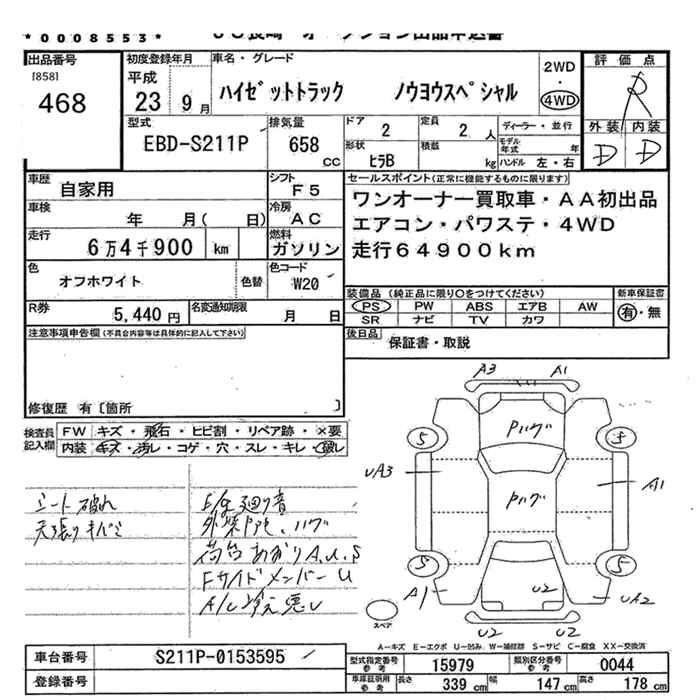 *0008553*
出品番号
[858]
468
初度登録年月
平成
23 9月
車名・グレード
ハイゼットトラック ノウヨウスペシャル
2WD
・
4WD
評価点
R
外装 内装
D D
型式
EBD-S211P
排気量
658 cc
ドア
2
定員
2 人
形状
ヒラB
積載
kg
ディーラー・並行
モデル年式 年
ハンドル 左・右
車歴
自家用
シフト
F5
車検
年 月( 日)
冷房
AC
走行
6万4千900 km
燃料
ガソリン
色
オフホワイト
色替
色コード
W20
R券
5,440円
名変通知期限
月 日
セールスポイント(正常に機能するものに限ります)
ワンオーナー買取車・AA初出品
エアコン・パワステ・4WD
走行64900km
装備品 (純正品に限り○をつけてください)
PS PW ABS エアB AW
SR ナビ TV カワ
新車保証書
有・無
後日品
保証書・取説
注意事項申告欄(不具合内容等は具体的に記入して下さい)
修復歴 有〔箇所 〕
検査員記入欄
FW キズ・飛石・ヒビ割・リペア跡・×要
内装 キズ・汚レ・コゲ・穴・スレ・キレ・破レ
シート破れ
天張りキバミ
外装下廻り
荷台あおりA.U.S
FサイドメンバーU
A/C冷え悪い
A3 A1
Pハゲ
5 5
UA3
Pハゲ
A1
5 5
A1
U2
UA2
U2 U2
スペア
A-キズ E-エクボ U-凹み W-補修跡 S-サビ C-腐食 XX-交換済
車台番号
S211P-0153595
登録番号
型式指定番号参考
15979
類別区分番号参考
0044
車庫証明用参考
長さ 339 cm 幅 147 cm 高さ 178 cm